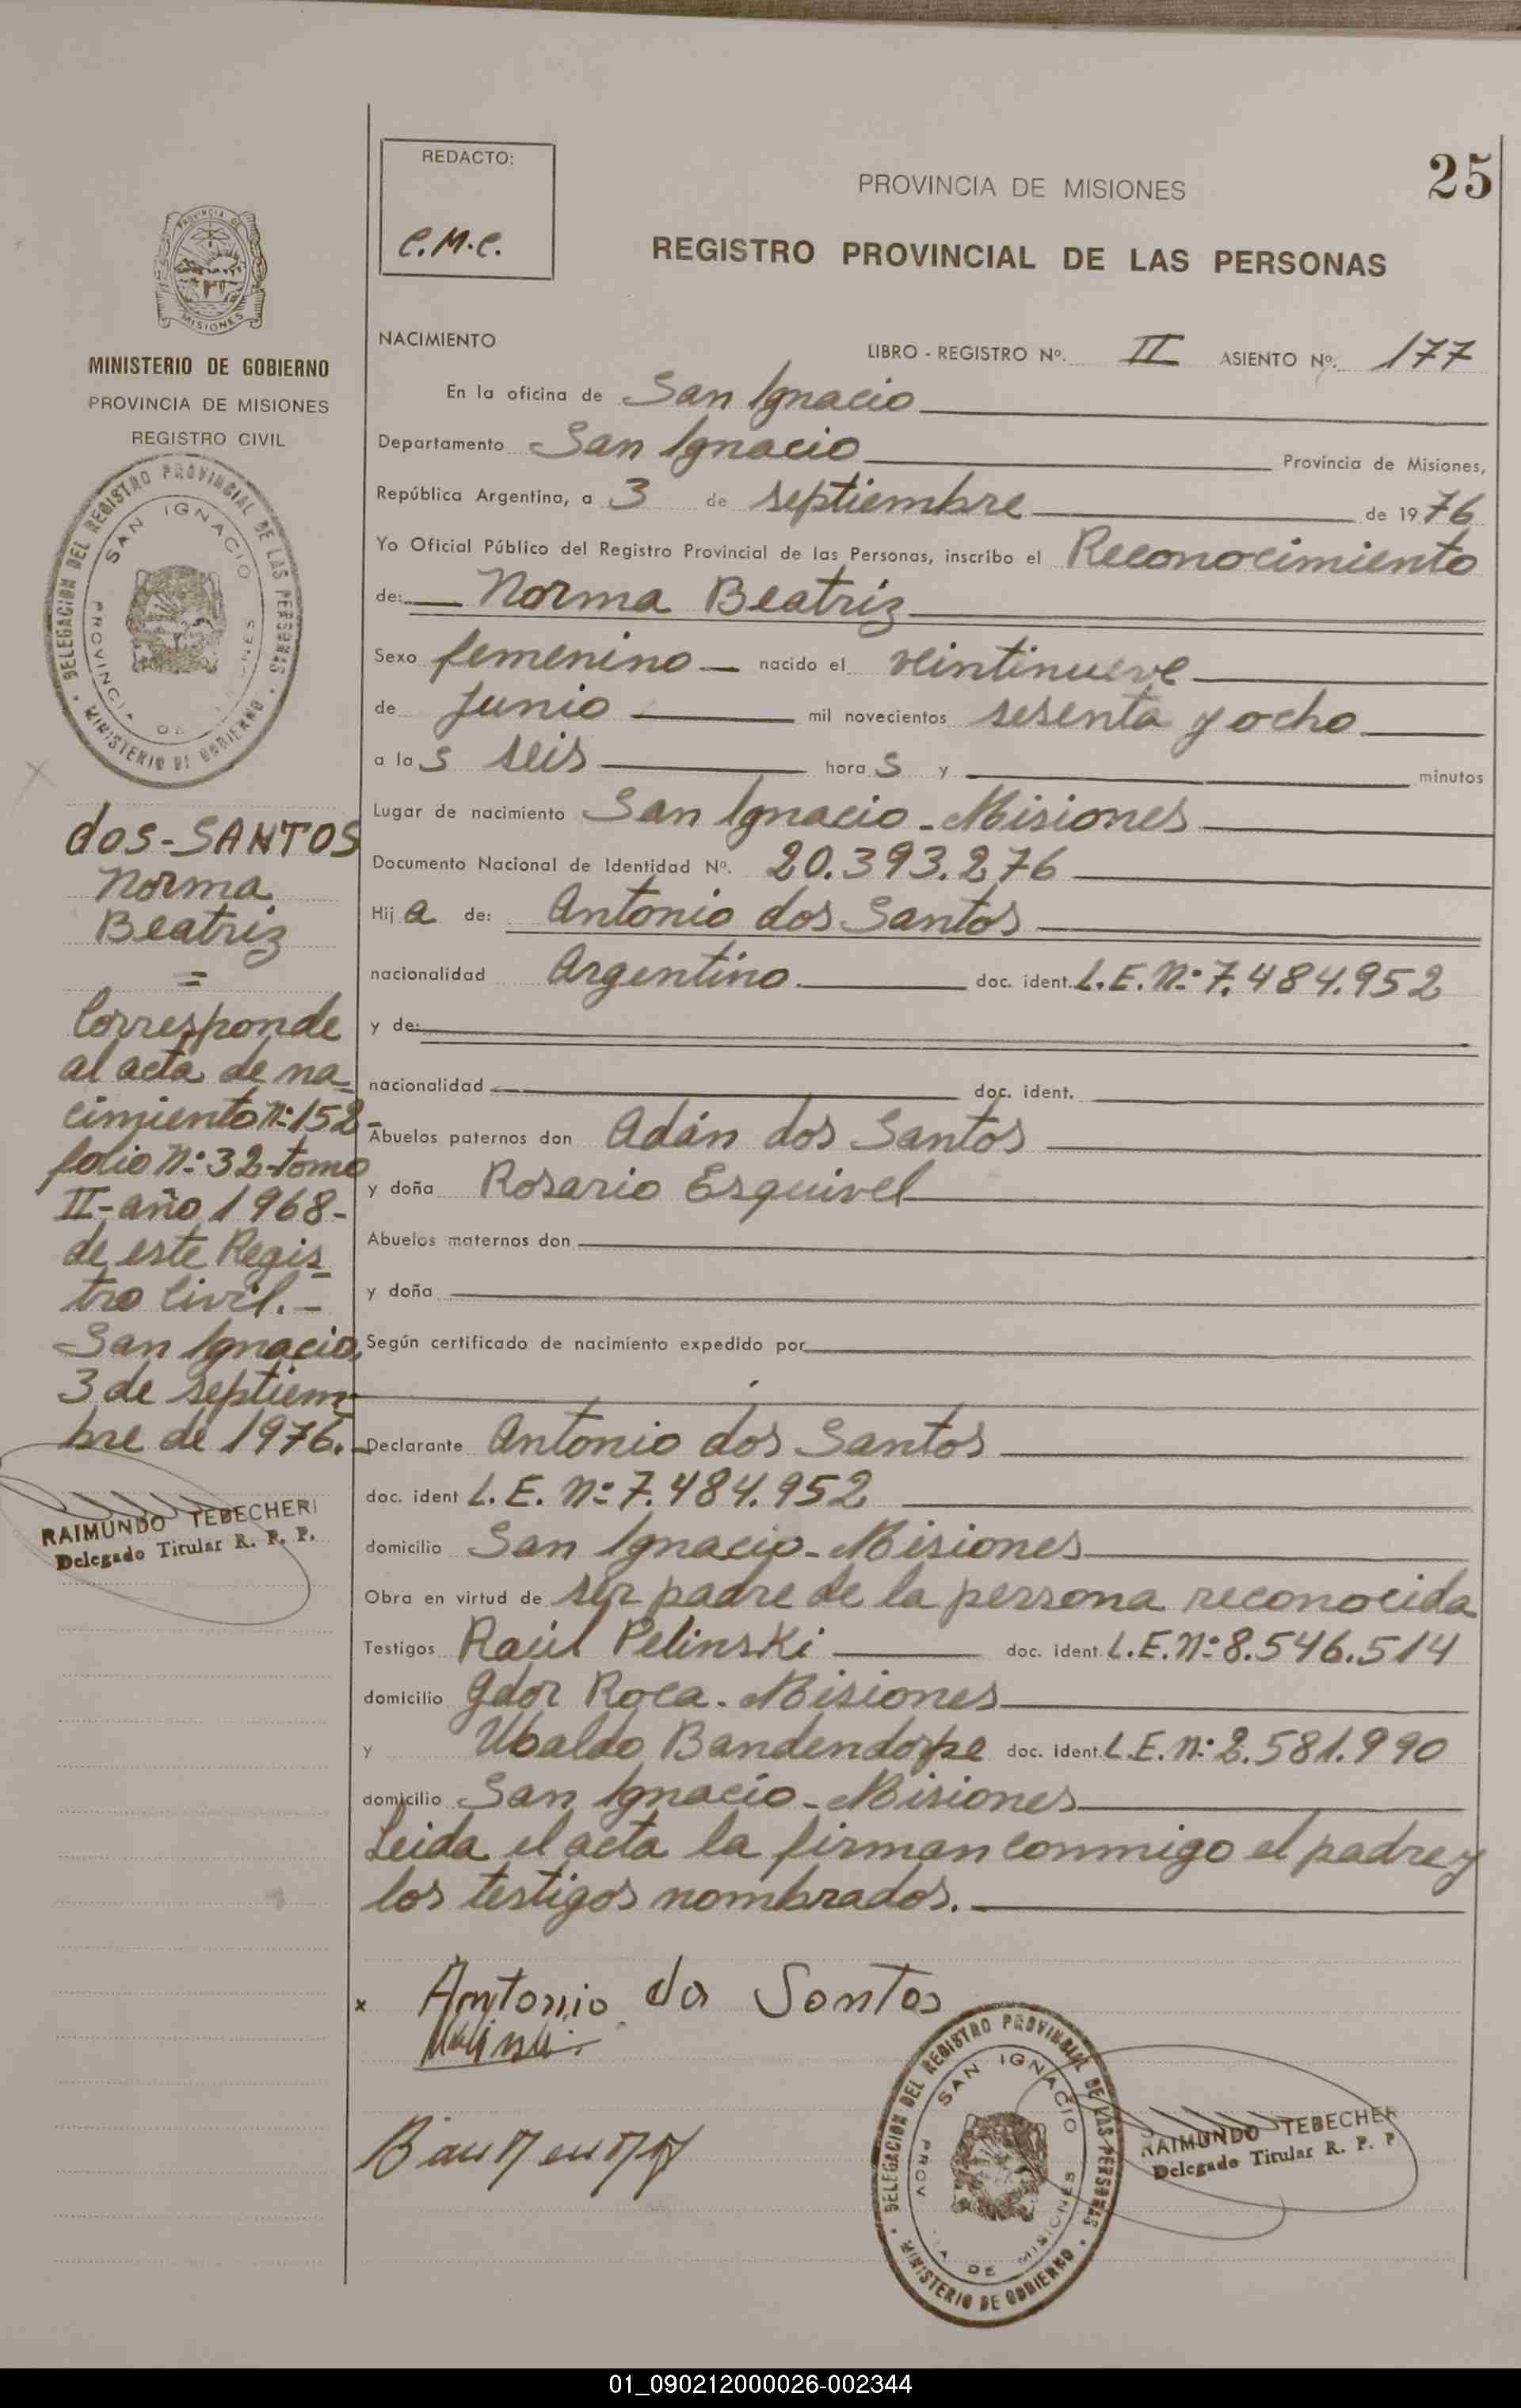 REDACTO:
C.M.C.
PROVINCIA DE MISIONES
25
REGISTRO PROVINCIAL DE LAS PERSONAS
PROVINCIA DE
MISIONES
MINISTERIO DE GOBIERNO
PROVINCIA DE MISIONES
REGISTRO CIVIL
DELEGACION DEL REGISTRO PROVINCIAL DE LAS PERSONAS
SAN IGNACIO
PROVINCIA DE MISIONES
MINISTERIO DE GOBIERNO
dos-SANTOS
Norma
Beatriz
=
Corresponde
al acta de na_
cimiento nº152-
folio nº 32-tomo
II-año 1968-
de este Regis_
tro Civil.-
San Ignacio,
3 de septiem-
bre de 1976.-
RAIMUNDO TEBECHERI
Delegado Titular R. P. P.
NACIMIENTO LIBRO - REGISTRO Nº. II ASIENTO Nº. 177
En la oficina de San Ignacio
Departamento San Ignacio Provincia de Misiones,
República Argentina, a 3 de septiembre de 1976
Yo Oficial Público del Registro Provincial de las Personas, inscribo el Reconocimiento
de: Norma Beatriz
Sexo femenino nacido el veintinueve
de junio mil novecientos sesenta y ocho
a las seis horas y minutos
Lugar de nacimiento San Ignacio - Misiones
Documento Nacional de Identidad Nº. 20.393.276
Hija de: Antonio dos Santos
nacionalidad Argentino. doc. ident. L.E.Nº 7.484.952
y de:
nacionalidad doc. ident.
Abuelos paternos don Adán dos Santos
y doña Rosario Esquivel
Abuelos maternos don
y doña
Según certificado de nacimiento expedido por
Declarante Antonio dos Santos
doc. ident L.E. nº 7.484.952
domicilio San Ignacio - Misiones
Obra en virtud de ser padre de la persona reconocida
Testigos Raúl Pelinski doc. ident. L.E.Nº 8.546.514
domicilio Gdor Roca - Misiones
y Ubaldo Bandendorpe doc. ident. L.E.nº 2.581.990
domicilio San Ignacio - Misiones
Leida el acta la firman conmigo el padre y
los testigos nombrados.
x Antonio do Santos
DELEGACION DEL REGISTRO PROVINCIAL DE LAS PERSONAS
SAN IGNACIO
PROV IA DE MISIONES
MINISTERIO DE GOBIERNO
RAIMUNDO TEBECHER
Delegado Titular R. P. P
01_090212000026-002344